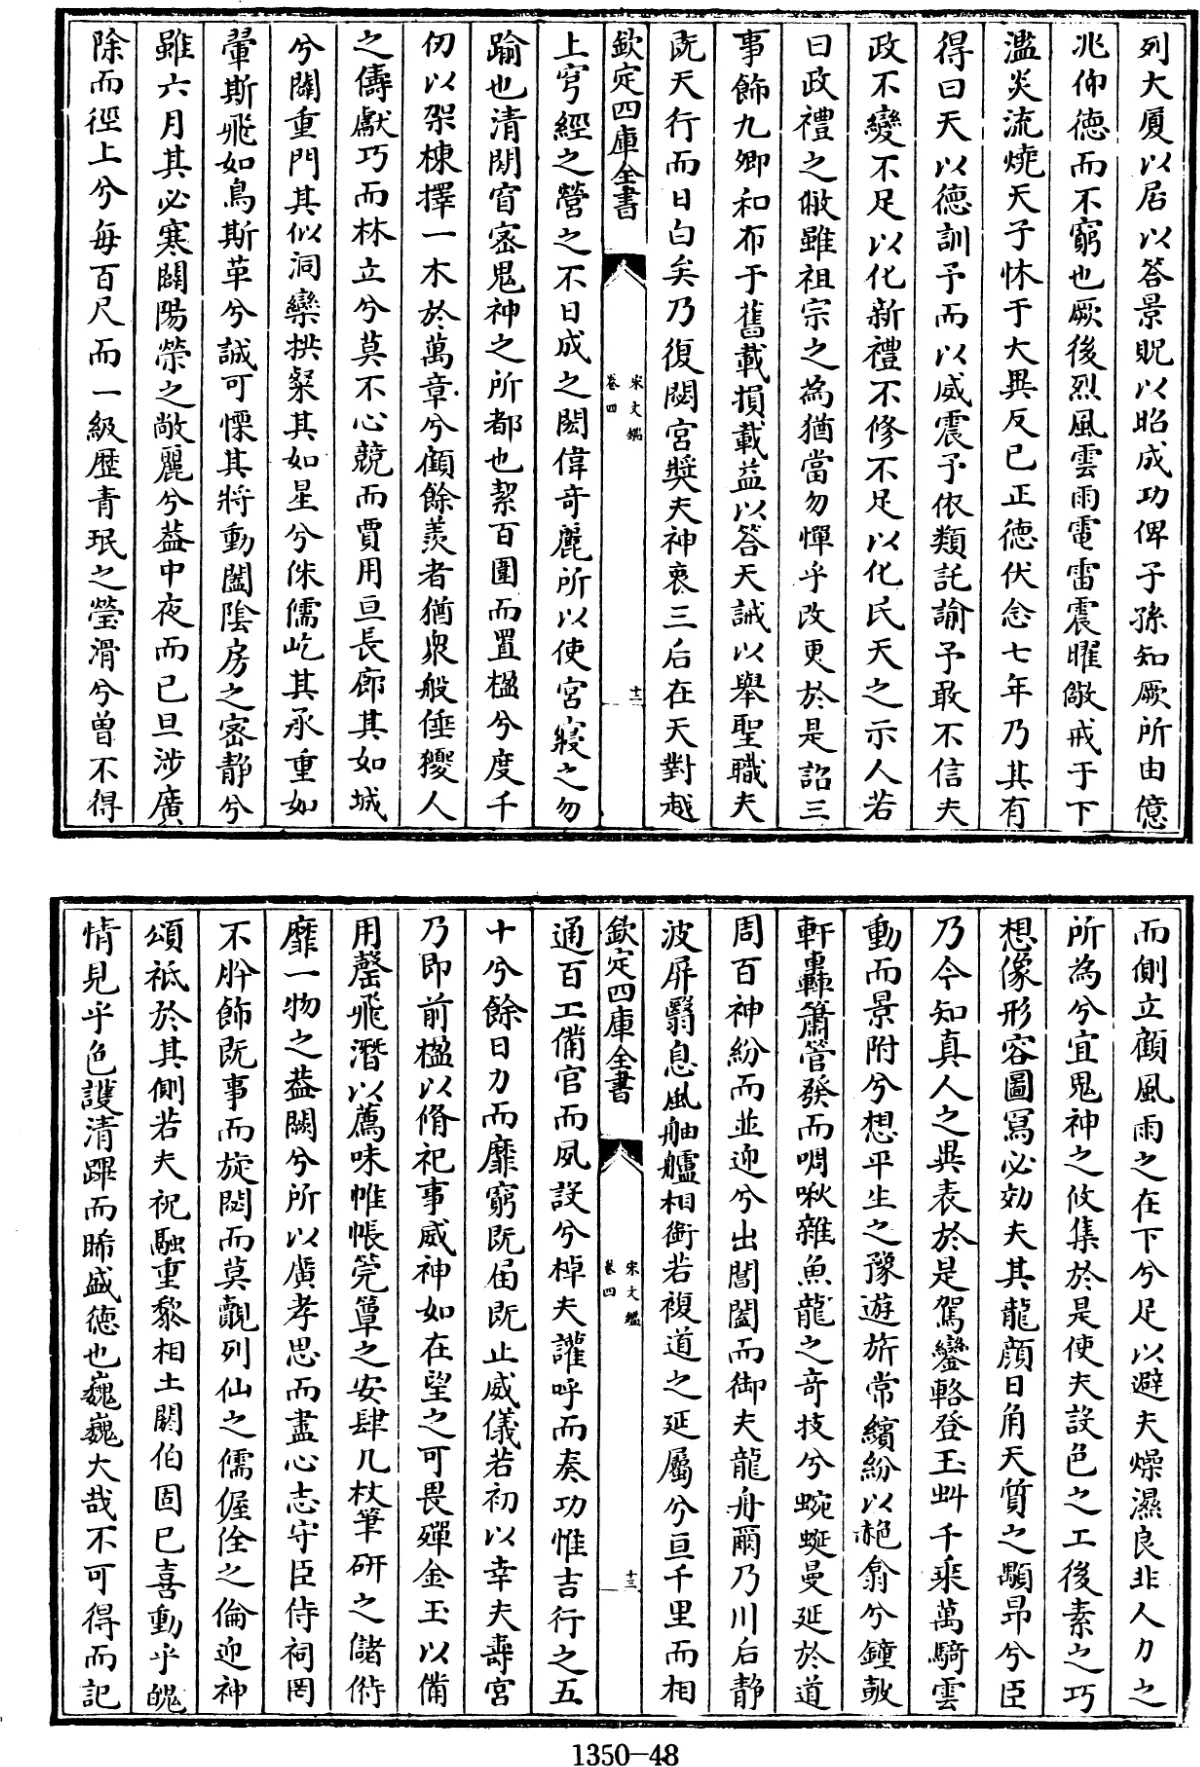 列大厦以居以答景貺以昭成功俾子孫知厥所由億
兆仰徳而不窮也厥後烈風雲雨電雷震曜儆戒于下
濫炎流燒天子怵于大異反已正徳伏念七年乃其有
得曰天以徳訓予而以威震予依類託諭予敢不信夫
政不變不足以化新禮不修不足以化民天之示人若
曰政禮之敝雖祖宗之為猶當勿憚乎改更於是詔三
事飾九卿和布于舊載損載益以答天誡以舉聖職夫
既天行而日白矣乃復閟宮奬夫神衷三后在天對越
欽定四庫全書
宋文鑑
卷四
十二
上穹經之營之不日成之閎偉竒麗所以使宮寢之勿
踰也清閒窅宻鬼神之所都也絜百圍而置楹兮度千
仞以架棟擇一木於萬章兮顧餘羨者猶衆般倕獶人
之儔獻巧而林立兮莫不心競而賈用亘長廊其如城
兮闢重門其似洞欒拱粲其如星兮侏儒屹其承重如
翬斯飛如鳥斯革兮誠可慄其將動闔陰房之宻静兮
雖六月其必寒闢陽榮之敞麗兮葢中夜而已旦涉廣
除而徑上兮毎百尺而一級歴青珉之瑩滑兮曽不得
而側立顧風雨之在下兮足以避夫燥濕良非人力之
所為兮宜鬼神之攸集於是使夫設色之工後素之巧
想像形容圖寫必効夫其龍顔日角天質之顒昻兮臣
乃今知真人之異表於是駕鑾輅登玉虬千乘萬騎雲
動而景附兮想平生之豫遊旂常繽紛以赩翕兮鐘鼓
軒轟簫管發而啁啾雜魚龍之竒技兮蜿蜒曼延於道
周百神紛而並迎兮出閶闔而御夫龍舟爾乃川后静
波屏翳息風舳艫相銜若複道之延屬兮亘千里而相
欽定四庫全書
宋文鑑
卷四
十三
通百工備官而夙設兮棹夫讙呼而奏功惟吉行之五
十兮餘日力而靡窮既届既止威儀若初以幸夫壽宮
乃即前楹以脩祀事威神如在望之可畏殫金玉以備
用罄飛潛以薦味帷帳筦簟之安肆几杖筆研之儲偫
靡一物之葢闕兮所以廣孝思而盡心志守臣侍祠罔
不肸飾既事而旋閟而莫覿列仙之儒偓佺之倫迎神
頌祇於其側若夫祝融重黎相土閼伯固已喜動乎魄
情見乎色謢清蹕而晞盛徳也巍巍大哉不可得而記
1350-48